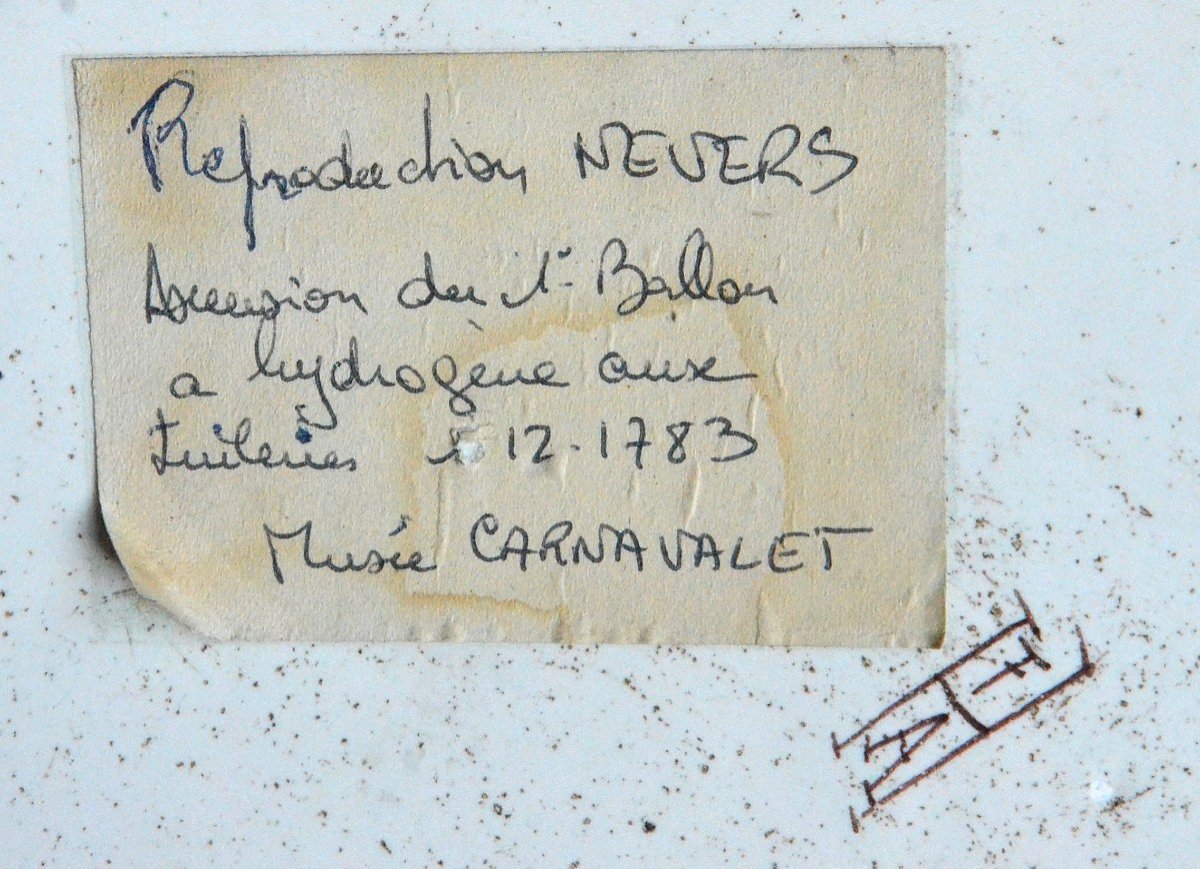 Reproduction NEVERS
Ascension du 1er Ballon
a hydrogène aux
Tuileries 12-1783
Musée CARNAVALET